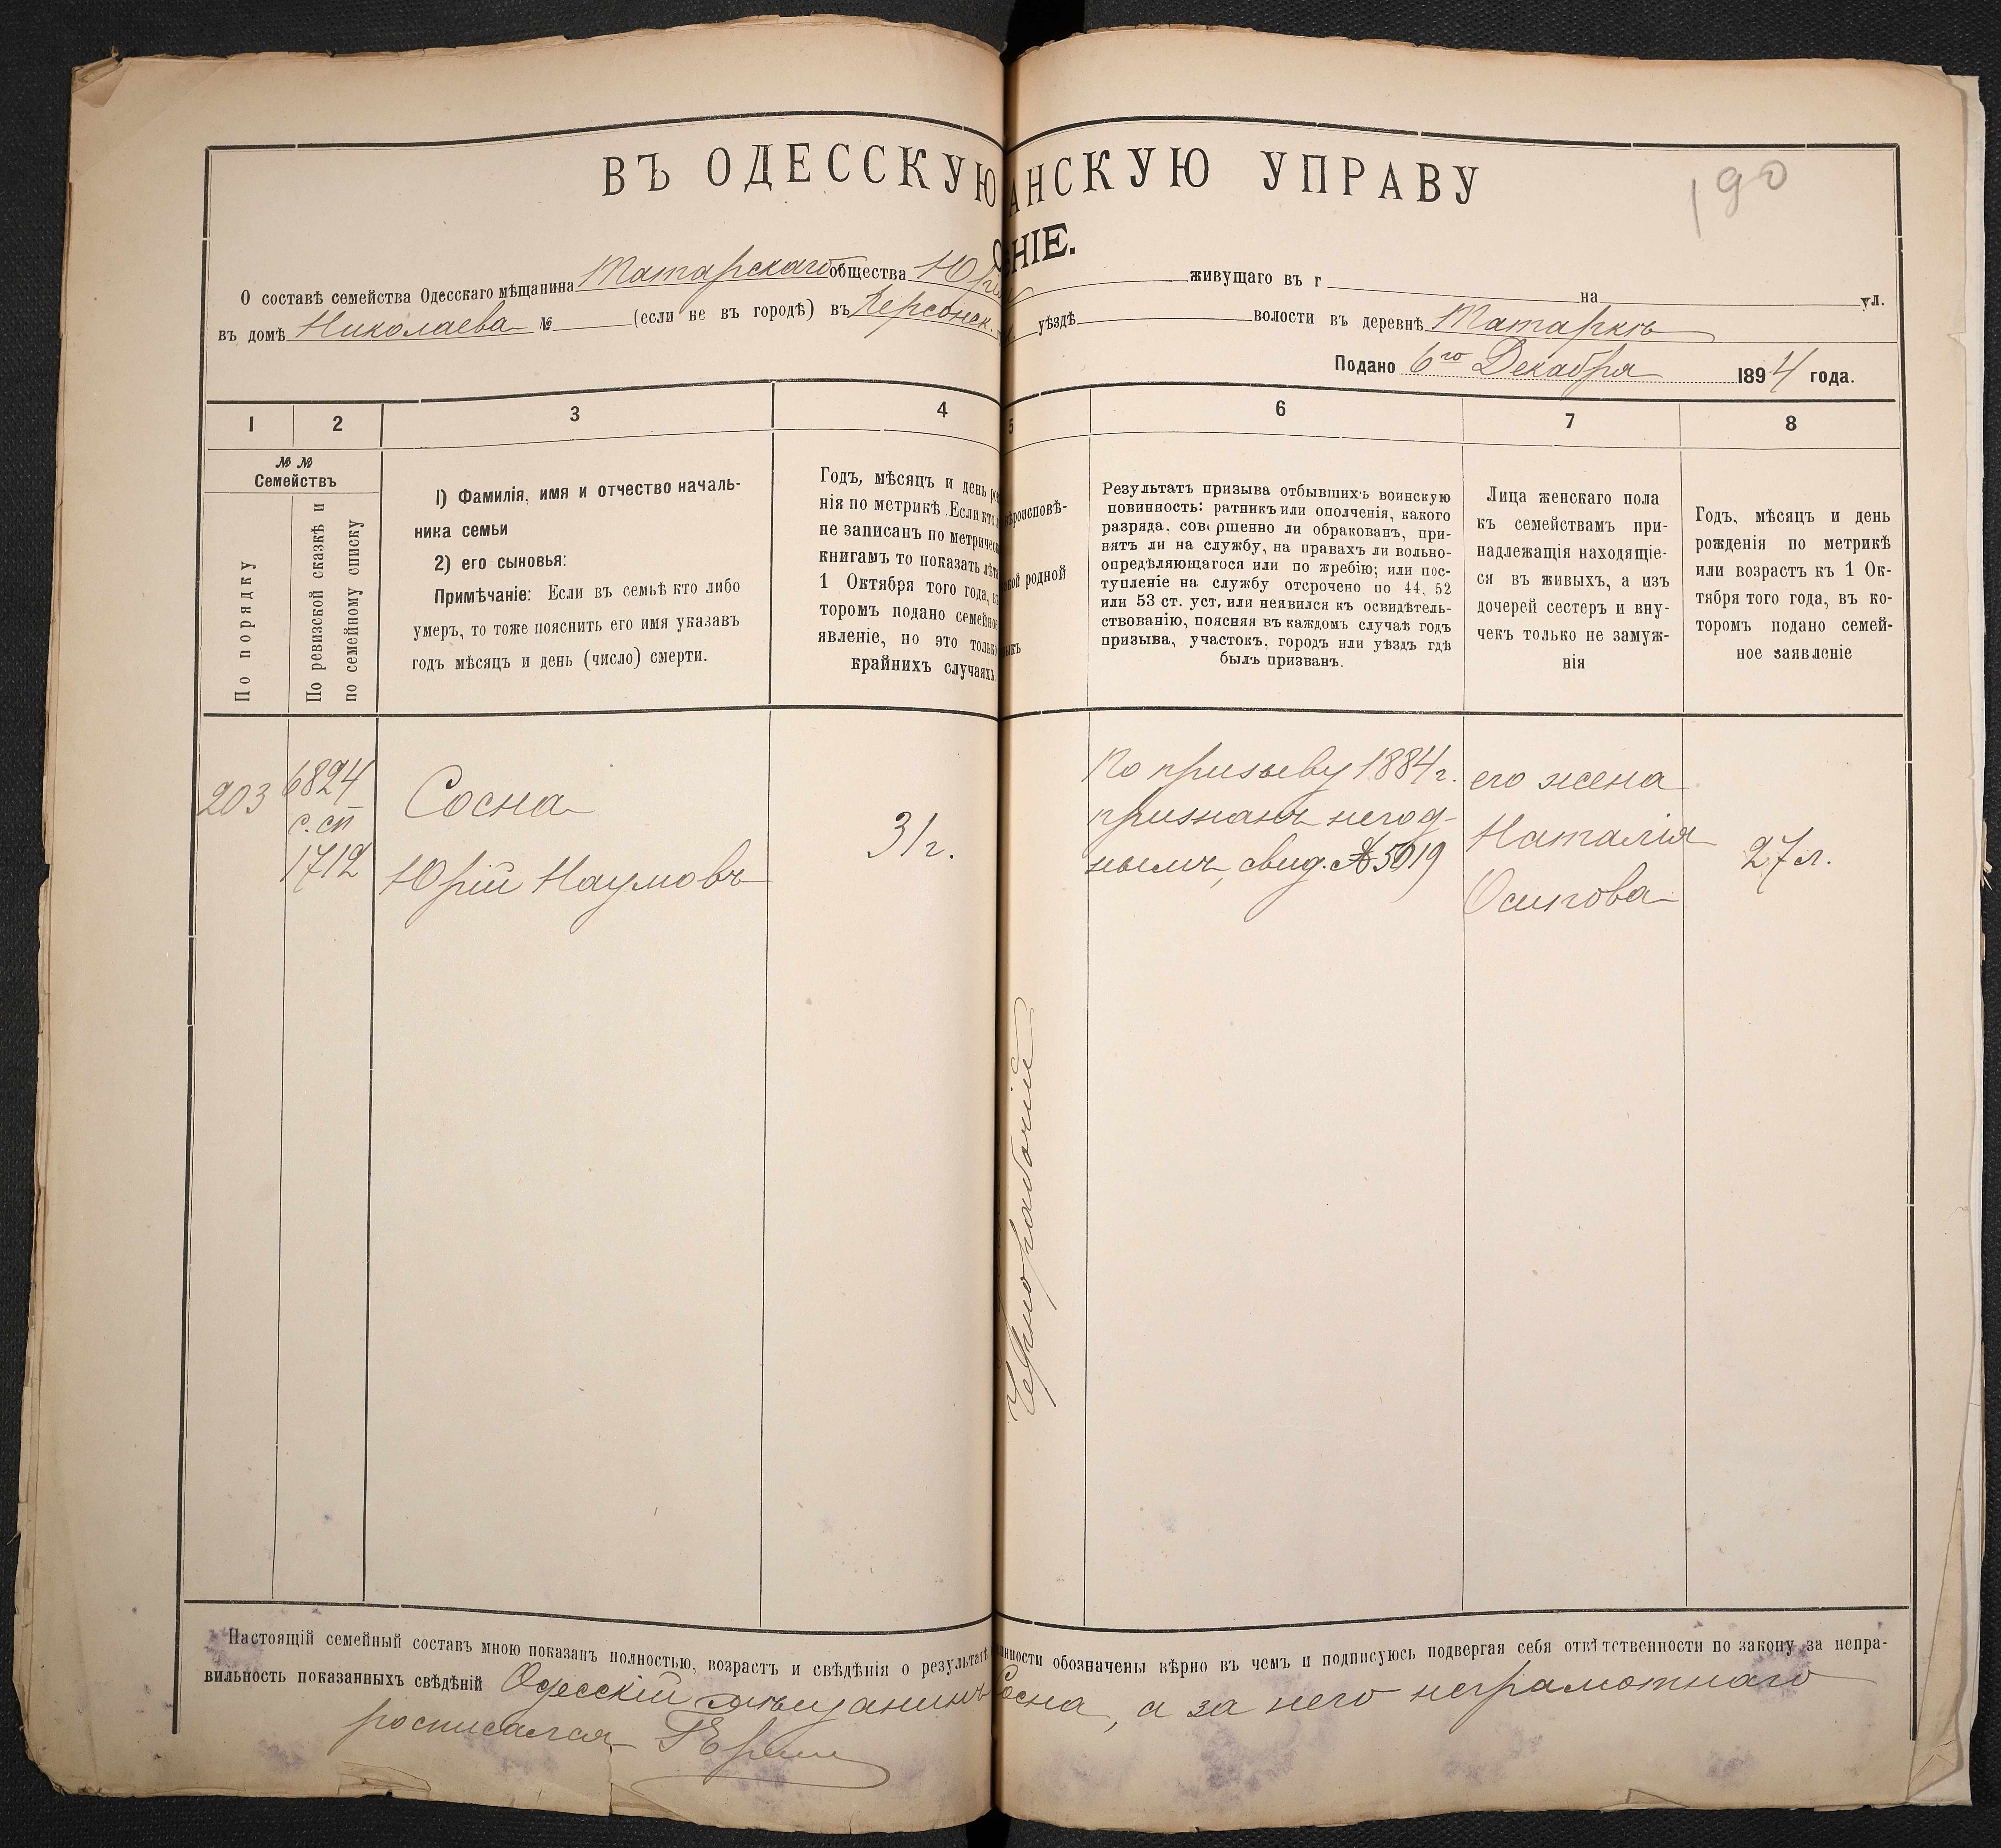 ВЪ ОДЕССКУЮ АНСКУЮ УПРАВУ
190
НІЕ.
О составѣ семейства Одесскаго мѣщанина Татарскаго общества Юрія живущаго въ г на ул.
въ домѣ Николаева № (если не въ городѣ) въ Херсонск. уѣздѣ волости въ деревнѣ Татаркѣ
Подано 6го Декабря 1894 года.
1 2 3 4 5 6 7 8
№ №
Семействъ
По порядку
По ревизской сказкѣ и
по семейному списку
1) Фамилія, имя и отчество началь-
ника семьи
2) его сыновья:
Примѣчаніе: Если въ семьѣ кто либо
умеръ, то тоже пояснить его имя указавъ
годъ мѣсяцъ и день (число) смерти.
Годъ, мѣсяцъ и день ро
нія по метрикѣ. Если кто
не записанъ по метричес
книгамъ то показать лѣт
1 Октября того года, въ
торомъ подано семейное
явленіе, но это только
крайнихъ случаяхъ.
роисповѣ-
кой родной
Результатъ призыва отбывшихъ воинскую
повинность: ратникъ или ополченія, какого
разряда, совершенно ли обракованъ, при-
нятъ ли на службу, на правахъ ли вольно-
опредѣляющагося или по жребію; или пос-
тупленіе на службу отсрочено по 44, 52
или 53 ст. уст. или неявился къ освидѣтель-
ствованію, поясняя въ каждомъ случаѣ годъ
призыва, участокъ, городъ или уѣздъ гдѣ
былъ призванъ.
Лица женскаго пола
къ семействамъ при-
надлежащія находящіе-
ся въ живыхъ, а изъ
дочерей сестеръ и вну-
чекъ только не замуж-
нія
Годъ, мѣсяцъ и день
рожденія по метрикѣ
или возрастъ къ 1 Ок-
тября того года, въ ко-
торомъ подано семей-
ное заявленіе
203
6824
с. сп
1712
Сосна
Юрій Наумовъ
31 г.
Чернорабочій
По призыву 1884 г.
признанъ негод-
нымъ, свид. № 5019
его жена
Наталія
Осипова
27 л.
Настоящій семейный составъ мною показанъ полностью, возрастъ и свѣдѣнія о результатѣ инности обозначены вѣрно въ чемъ и подписуюсь подвергая себя отвѣтственности по закону за непра-
вильность показанныхъ свѣдѣній Одесскій мѣщанинъ Сосна, а за него неграмотнаго
росписался